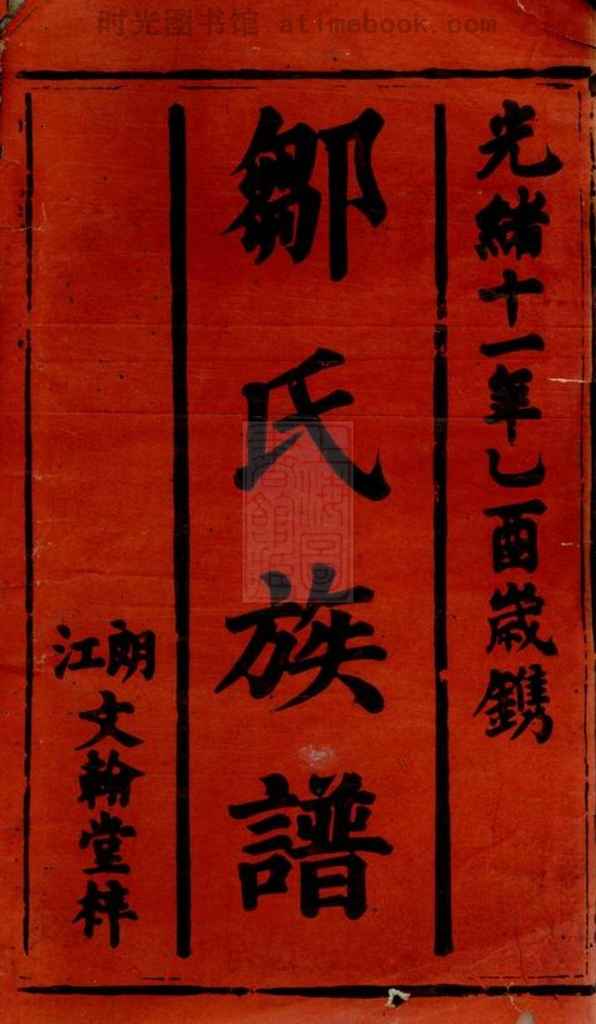 时光图书馆 www.atimebook.com
光緒十一年乙酉歲鐫
鄒氏族譜
朗江文翰堂梓